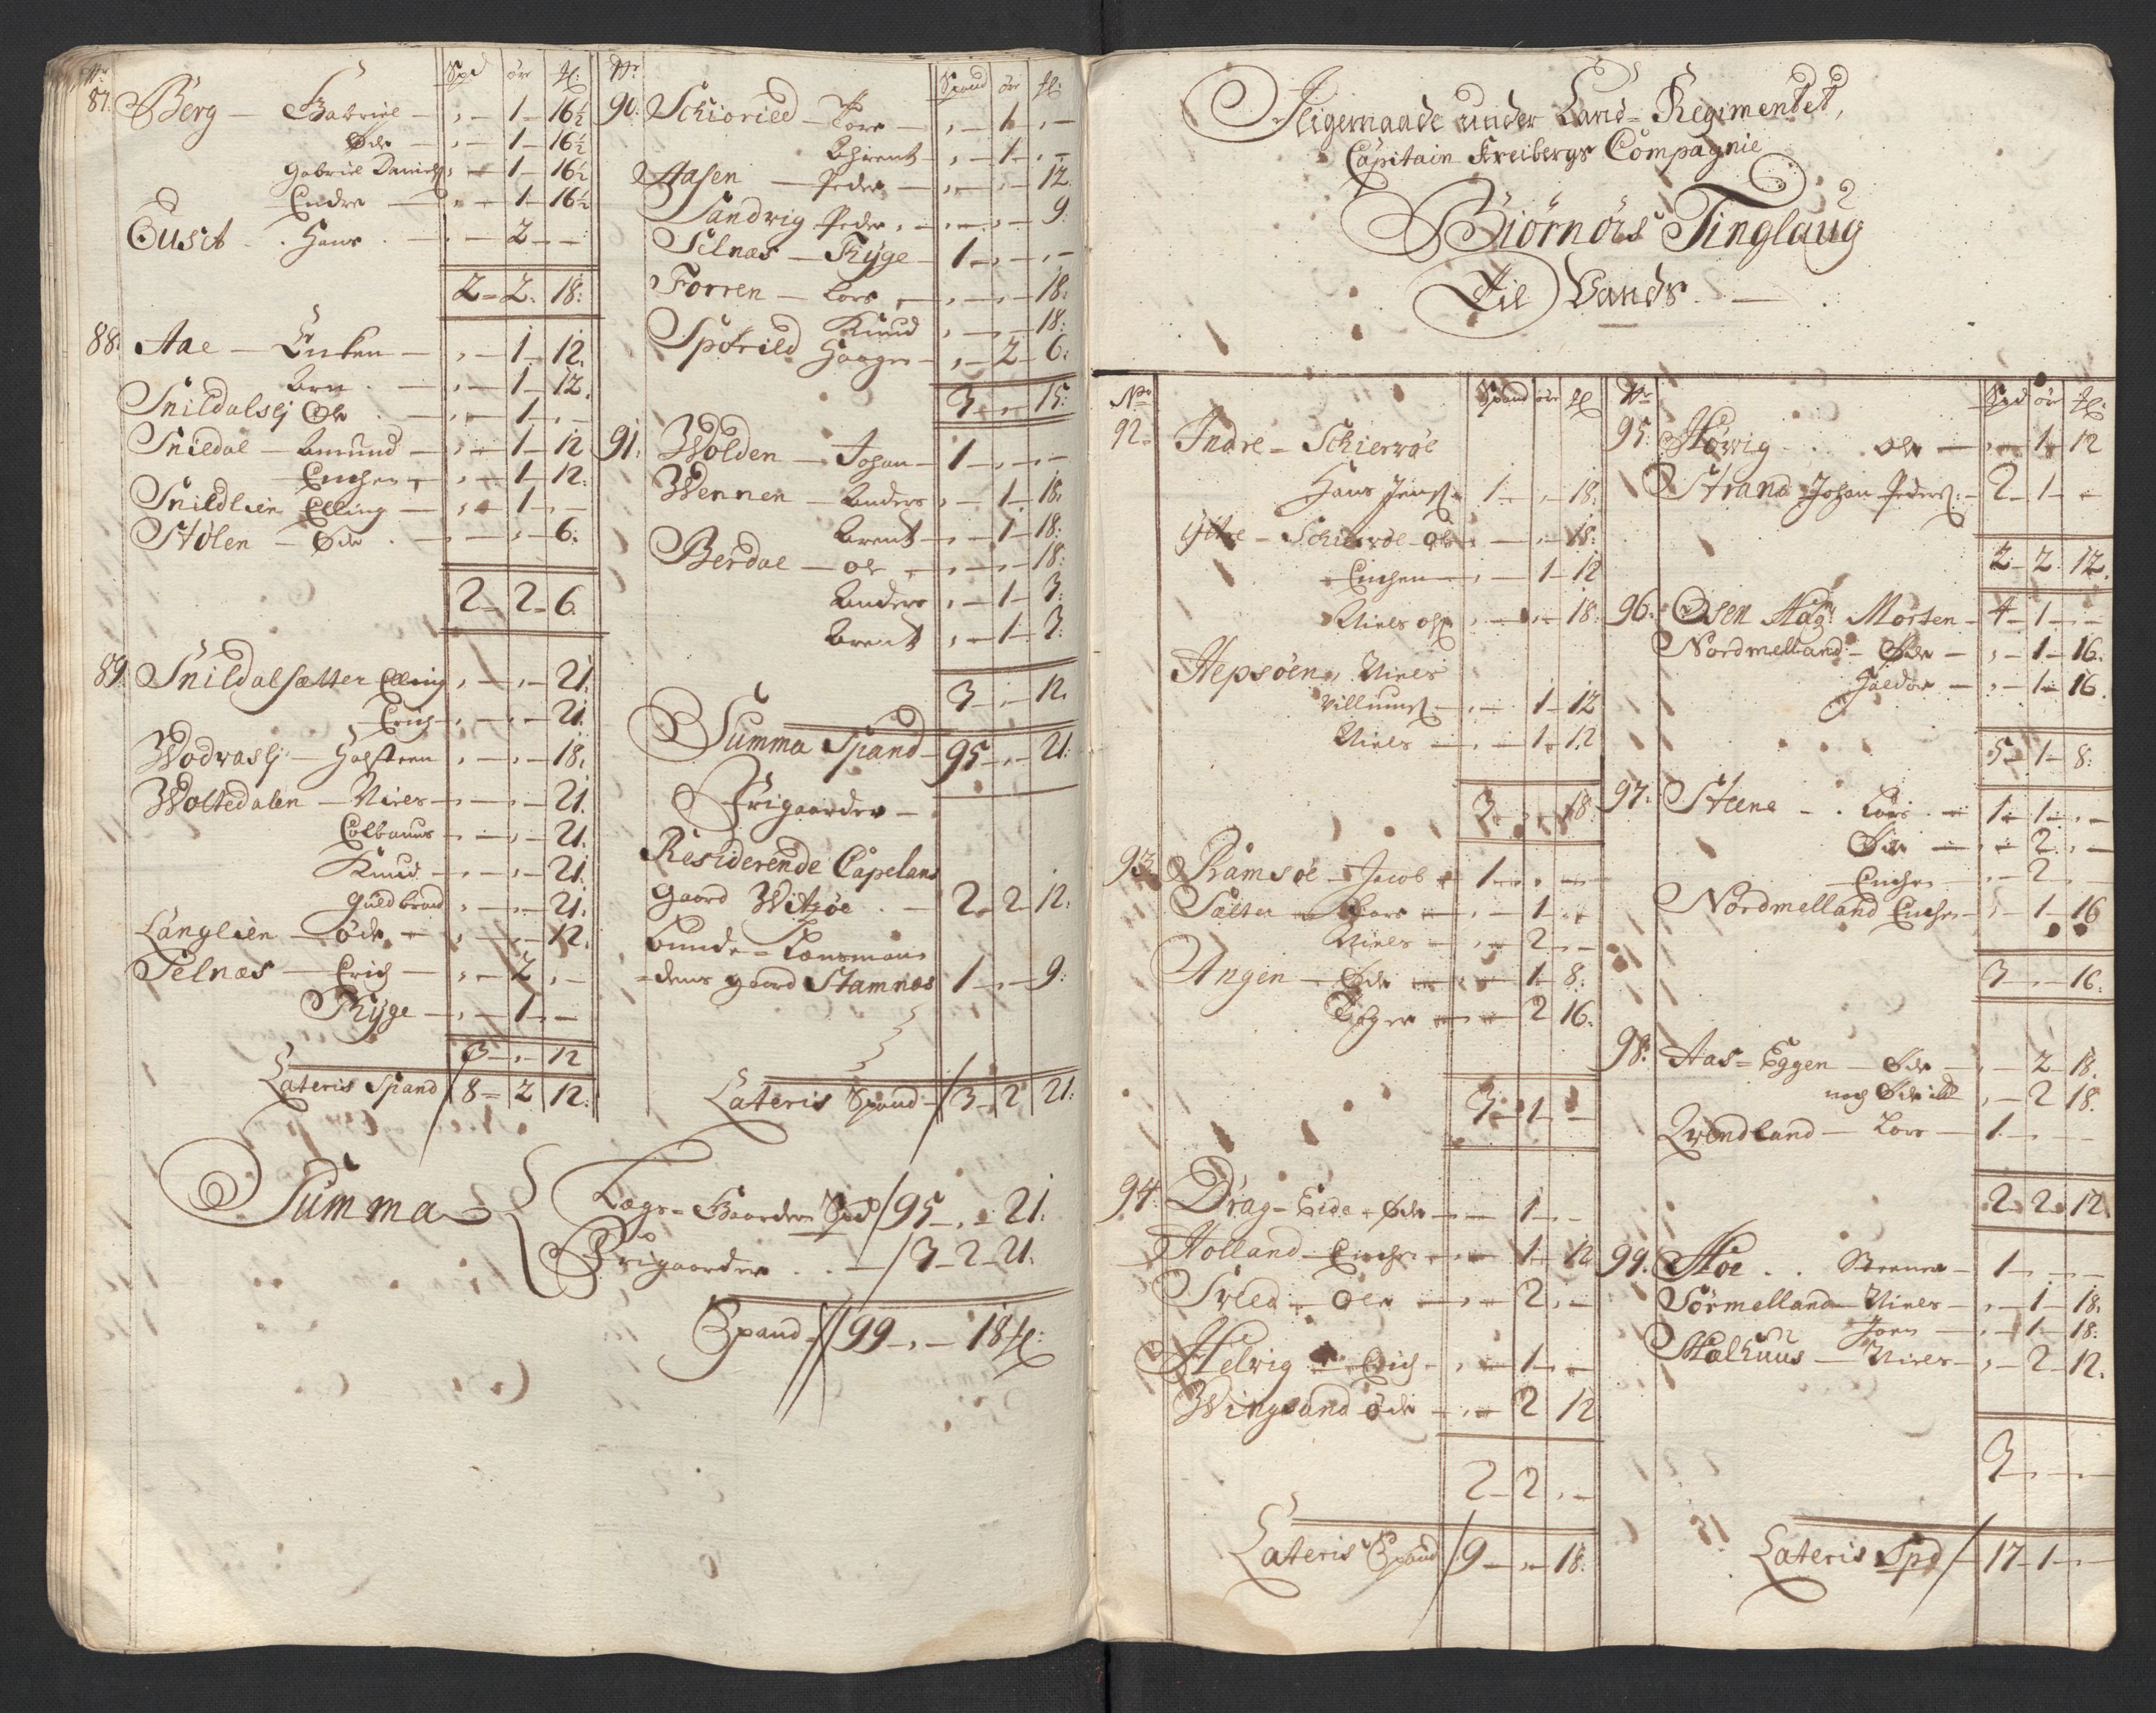 No Spd øre Ꝟl:
87. Berg — Gabriel — , — 1 — 16½
Øde — , — 1 — 16½
Gabriel Daniels: , — 1 — 16½
Endre — , — 1 — 16½
Cusit . . Hans . — , — 2 — —
2 — 2. 18:
88. Aae — Encken — , — 1 — 12.
Arn . — , — 1 — 12.
Snildalslj Ole . — , — 1 — , —
Snildal — Amund — , — 1 — 12
Encher — , — 1 — 12.
Snildlien Elling — , — 1 — , —
Stølen — Øde . — , — , — 6:
2 — 2 — 6.
89. Snildalsætter Elling , — , — 21.
Erich — , — , — 21.
Wodraslj — Halsteen , — , — 18.
Woltedalen — Niels — , — , — 21.
Colbanus — , — , — 21.
Knud — , — , — 21.
Guldbrand , — , — 21.
Langlien — øde — , — , — 12.
Selnæs — Erich — , — 2 — , —
Tryge — , — 1 — , —
3 — , — 12
Lateris Spand / 8 — 2 12:
No Spand øre
90. Schioried — Tore — , — 1 — , —
Bhrent — , — 1 — , —
Aasen — Peder — , — , — 12.
Sandvig Peder , — , — , — 9.
Selnæs — Tryge — 1 — , — , —
Forren — Lars — , — , — 18.
Knud , — , — 18:
Spotrild Haagen — , — 2 — 6.
3 — , — 15:
91. Wolden — Johan — 1 — , — , —
Wennen — Anders , — 1 — 18.
Brent — , — 1 — 18:
Berdal — Ole — , — , — 18:
Anders , — 1 — 3:
Brent , — 1 — 3:
3 — , — 12.
Summa Spand 95 — , — 21:
Frigaarder —
Residerende Capelans
Gaard Witzøe . — 2 — 2 — 12.
Bunde-Lænsmans
-dens gaard Stamnæs 1 — , — 9:
Lateris Spand — / 3 — 2 21:
Summa Lægs-Gaarder Spd / 95 — , — 21.
Frigaarder . . — / 3 — 2 — 21.
Spand // 99 — , — 18
Iligemaade under Land-Regimentet,
Capitain Freibergs Compagnie
Biørnørs Tinglaug
Til Lands . —
No Spand øre
92. Indre — Schierrøe
Hans Jens: 1 — , — 18.
Ytre — Schierrøe Ole — , — 18.
Encken — , — 1 — 12
Niels Ols: , — , — 18.
Hepsøen , Niels
Villums: — , — 1 — 12
Niels — , — 1 — 12
3 — , — 18.
93. Ramsøe — Jacob — 1 — , — , —
Sætter — Lars — , — 1 — , —
Niels — , — 2 — , —
Angen — Øde — , — 1 — 8.
Holger — , — 2 16:
3 — 1 — —
94. Drag-Eide — Øde — , — 1 — , —
Holland — Encke — , — 1 — 12
Sved — Ole — , — 2 — , —
Helvig — Erich — , — 1 — , —
Wingsand øde — , — 2 12
2 — 2 , —
Lateris Spand / 9 — , — 18:
No Spd øre
95. Howig . . Ole — , — 1 — 12
Strand Johan Peders: — 2 — 1 — , —
2 — 2 12.
96. Osen Hagr Morten — 4 — 1 — , —
Nordmelland — Øde — , — 1 — 16.
Haldor — , — 1 — 16.
5 — 1 — 8:
97. Steene — . Lars . — 1 — 1 — , —
Øde — , — 2 , —
Encke — , — 2 — ,
Nordmelland Encke — , — 1 — 16
3 — , — 16:
98. Aas-Eggen — Øde — , — 2 — 18.
noch Øde , — 2 18.
Qwendland — Lars — 1 — , — , —
2 — 2 12.
99. Høe . . — 1 — , — , —
Sörmelland — Niels — , — 1 — 18.
Joen — , — 1 — 18:
Mælhuus — Niels — , — 2 — 12.
3 — , — , —
Lateris Spd / 17 — 1 — , —